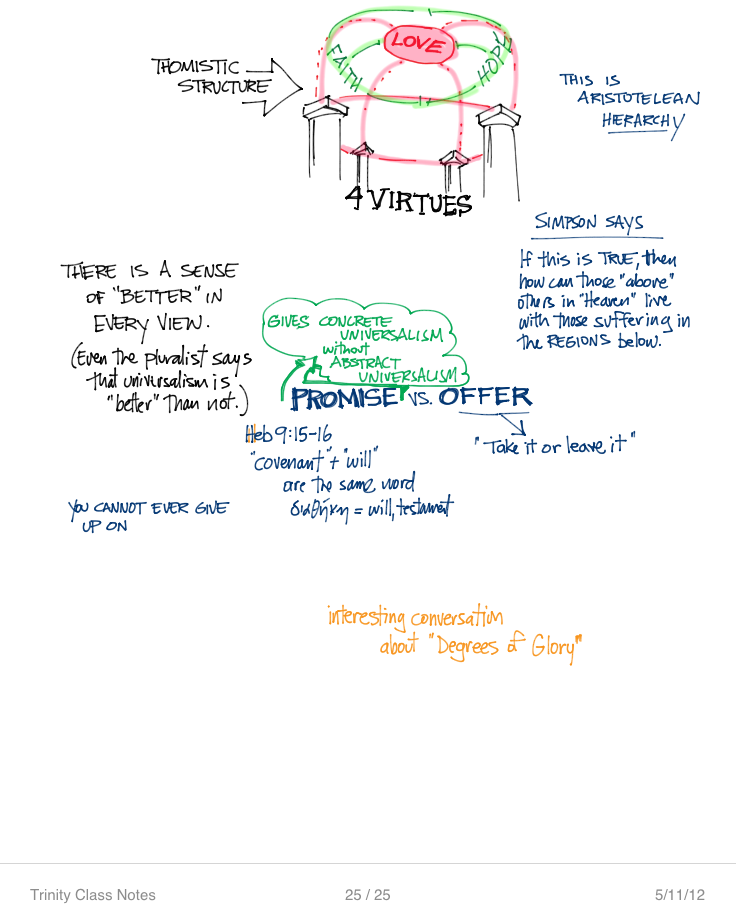 THOMISTIC
STRUCTURE
LOVE
FAITH
HOPE
4 VIRTUES
THIS IS
ARISTOTELEAN
HERARCHY
SIMPSON SAYS
If this is TRUE, then
how can those "above"
others in "Heaven" live
with those suffering in
the REGIONS below.
THERE IS A SENSE
OF "BETTER" IN
EVERY VIEW.
(Even the pluralist says
that universalism is
"better" than not.)
GIVES CONCRETE
UNIVERSALISM
without
ABSTRACT
UNIVERSALISM
PROMISE VS. OFFER
"Take it or leave it"
Heb 9:15-16
"covenant" + "will"
are the same word
διαθήκη = will, testament
YOU CANNOT EVER GIVE
UP ON
interesting conversation
about "Degrees of Glory"
Trinity Class Notes
25 / 25
5/11/12